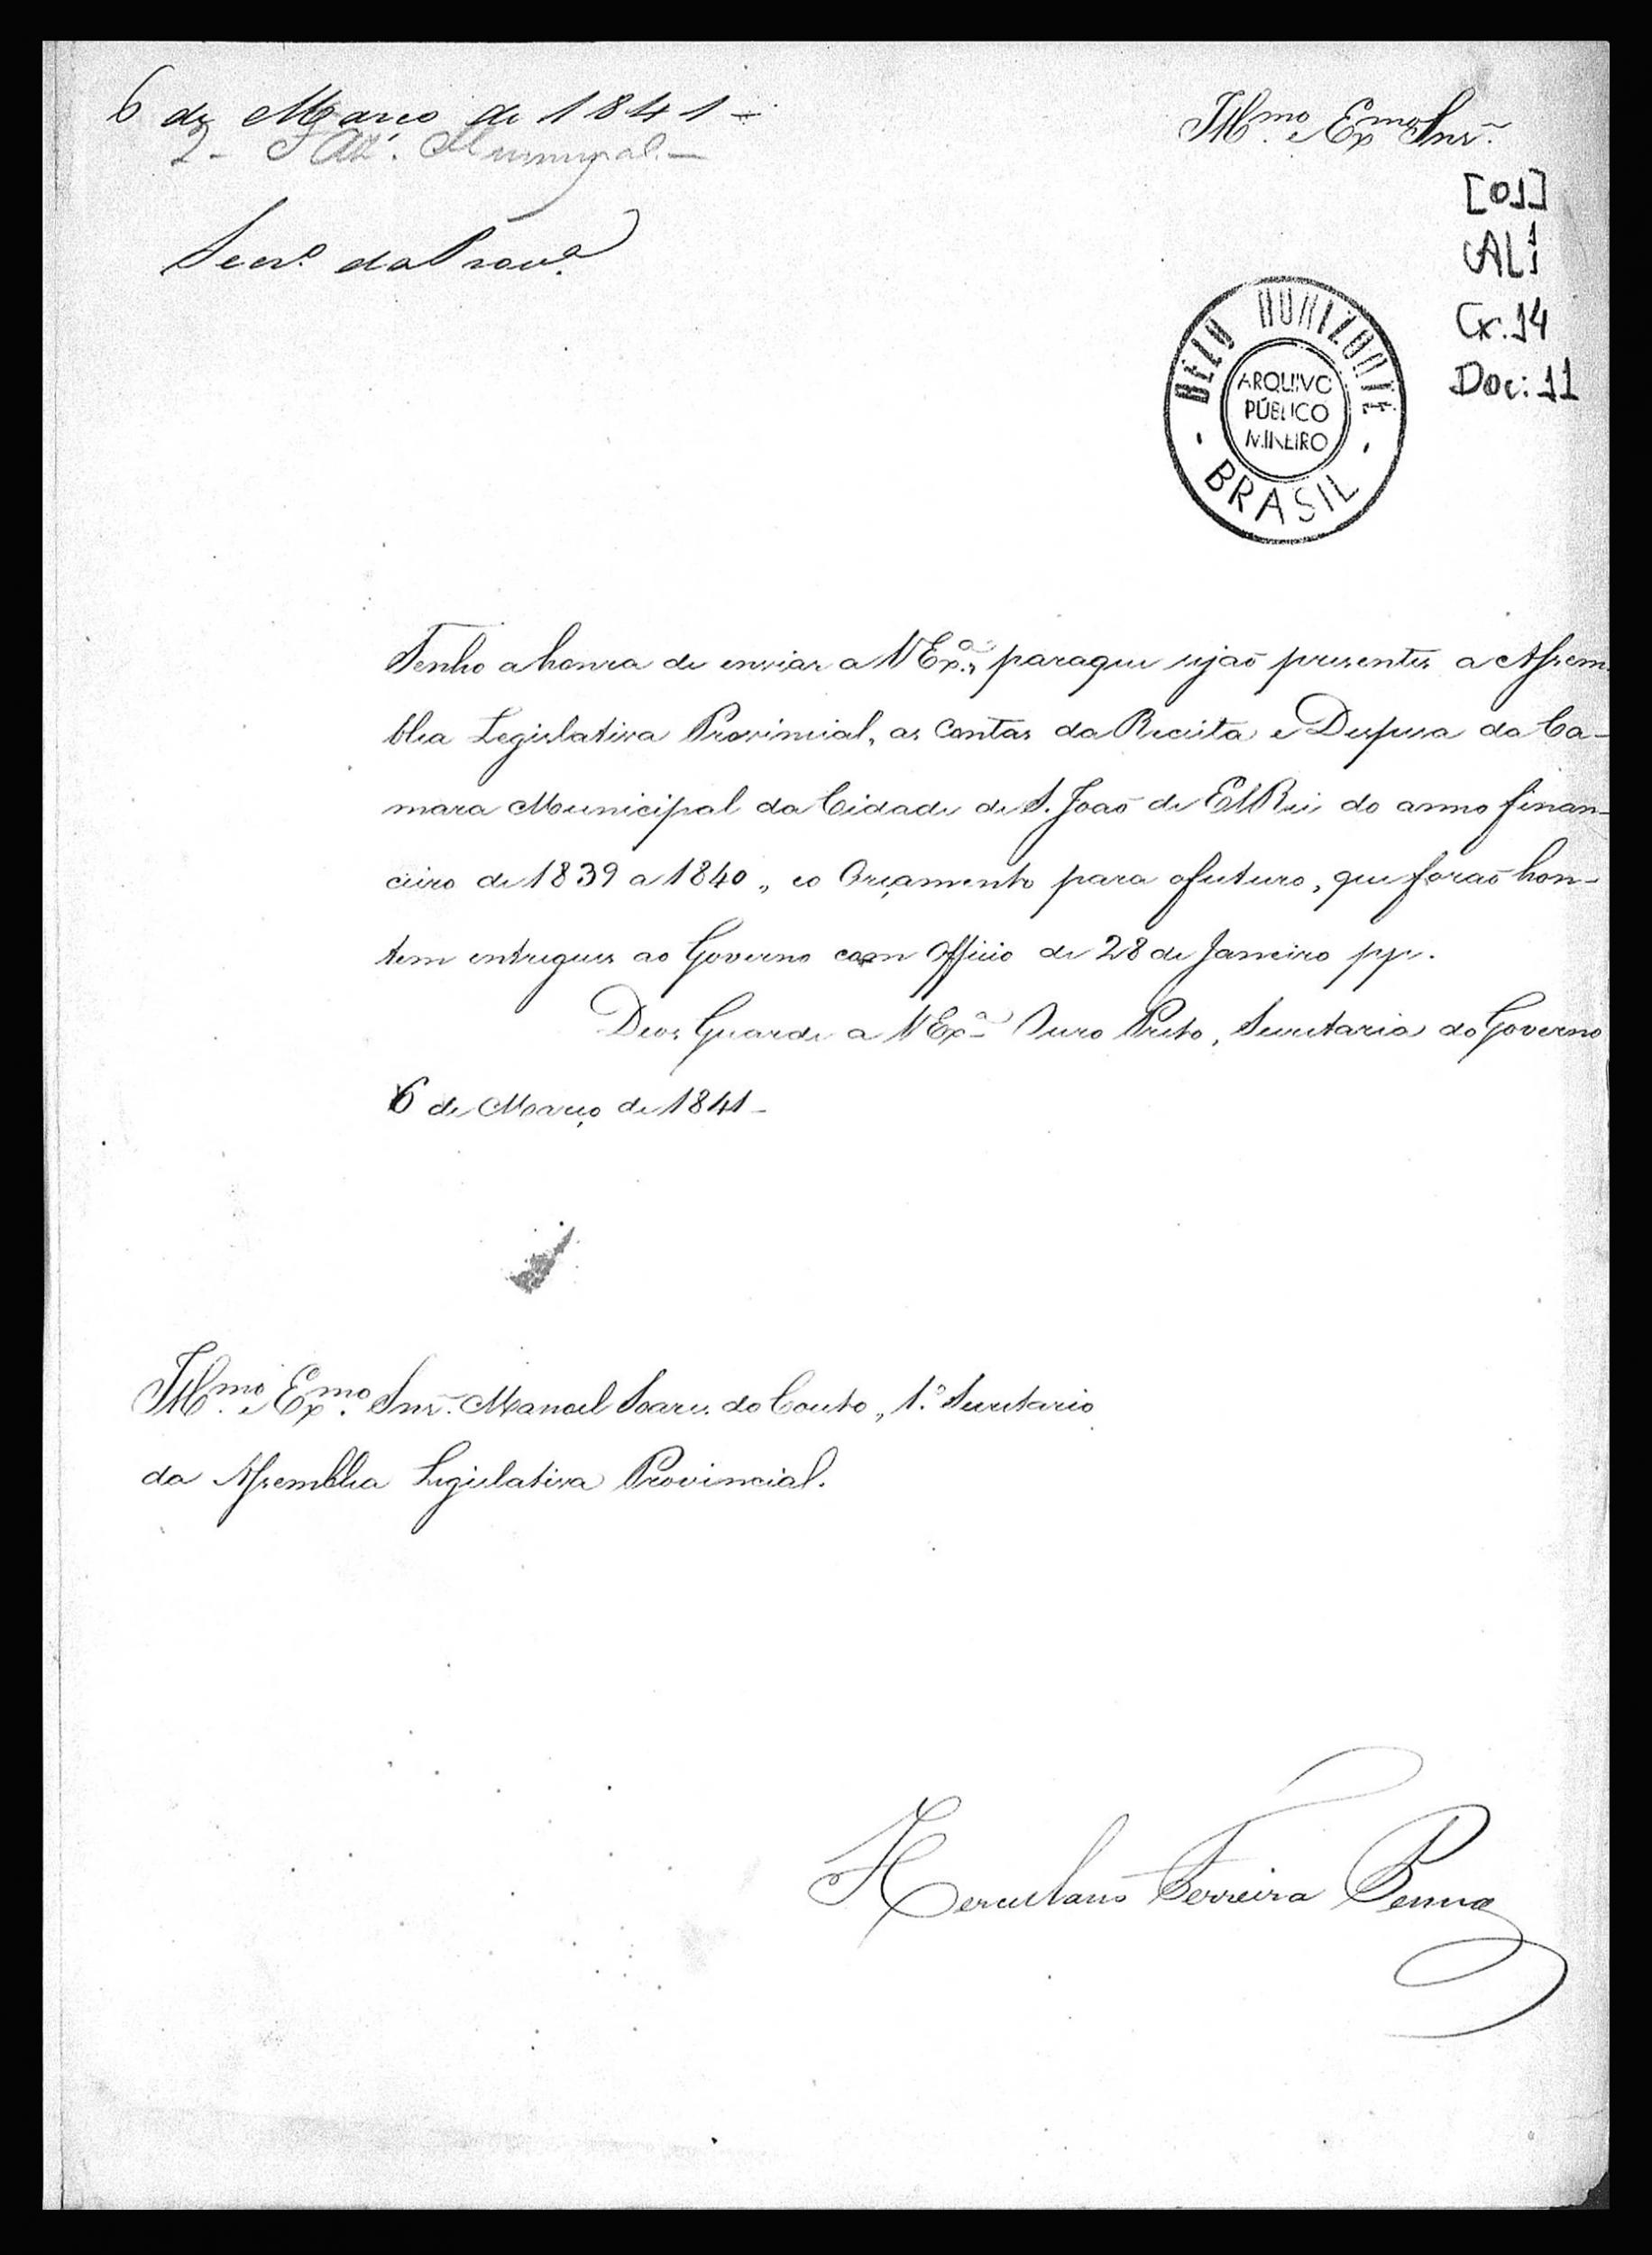 6 de Março de 1841 -
2 - Faz.ª Municipal. -
Secr.º da Prov.ª
Ill.mo e Ex.mo Snr.
[01]
AL 1
1
Cx. 14
Doc: 11
BELO HORIZONTE
ARQUIVO
PÚBLICO
MINEIRO
BRASIL
Tenho a honra de enviar a V Ex.ª, para que sejaõ presentes a Assem
blea Legislativa Provincial, as Contas da Receita e Despesa da Ca-
mara Municipal da Cidade de S. Joaõ de ElRei do anno finan-
ceiro de 1839 a 1840, eo Orçamento para ofuturo, que foraõ hon-
tem entregues ao Governo com Officio de 28 de Janeiro pp.
Deos Guarde a V Ex.ª Ouro Preto, Secretaria do Governo
6 de Março de 1841 -
Ill.mo e Ex.mo Snr. Manoel Soares do Couto, 1.º Secretario
da Assemblea Legislativa Provincial.
Herculano Ferreira Penna